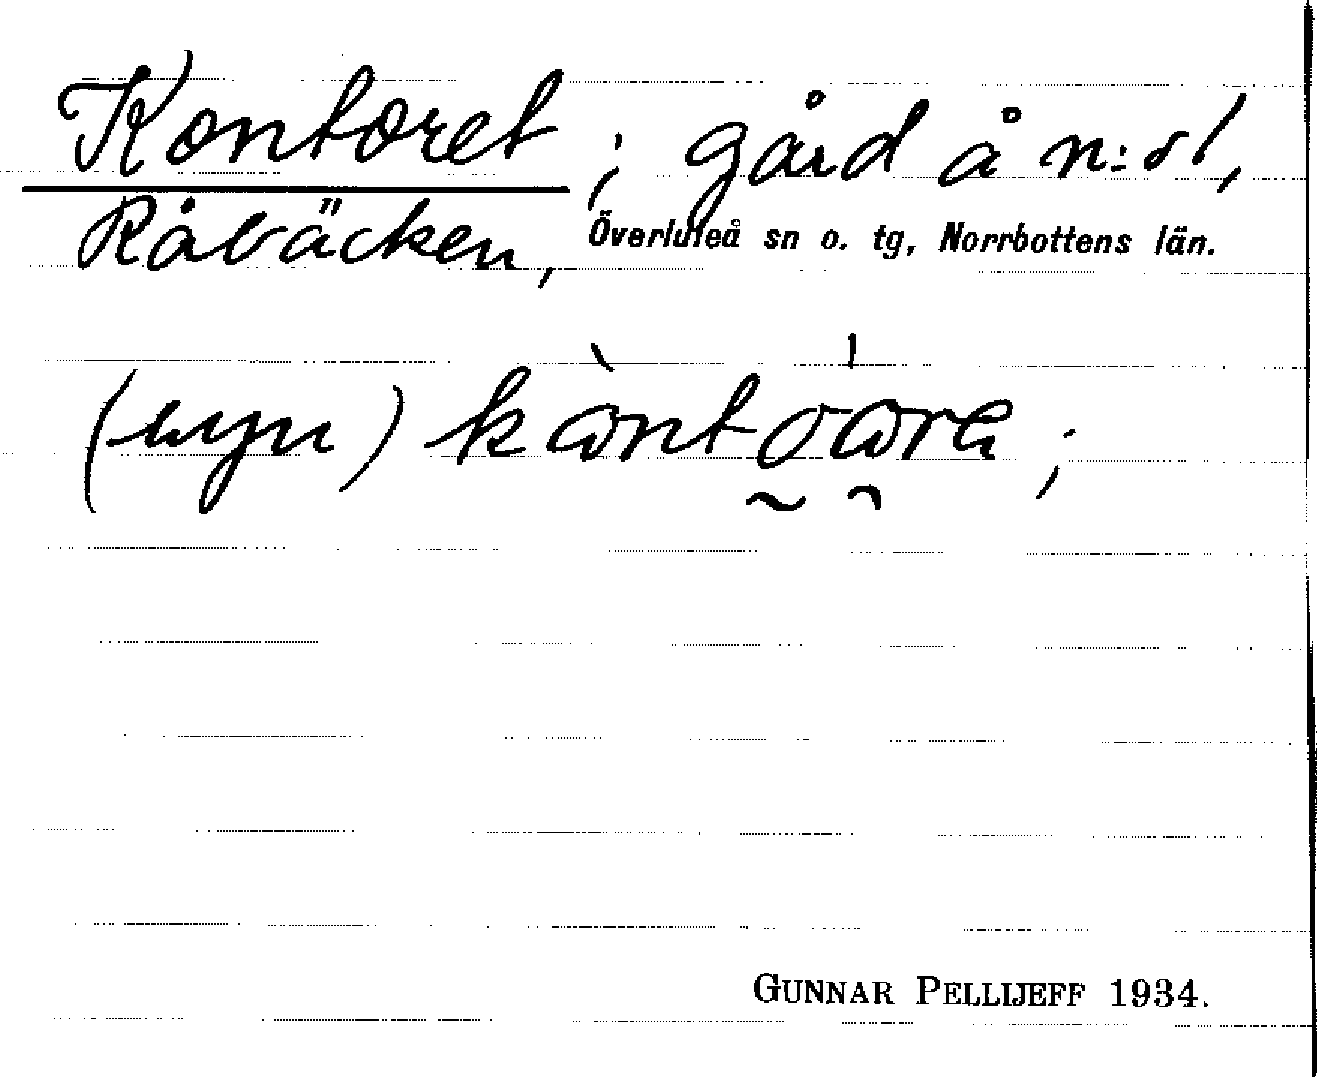 Kontoret ; gård å n:o 1,
Råbäcken, Överluleå sn o. tg, Norrbottens län.
GUNNAR PELLIJEFF 1934.